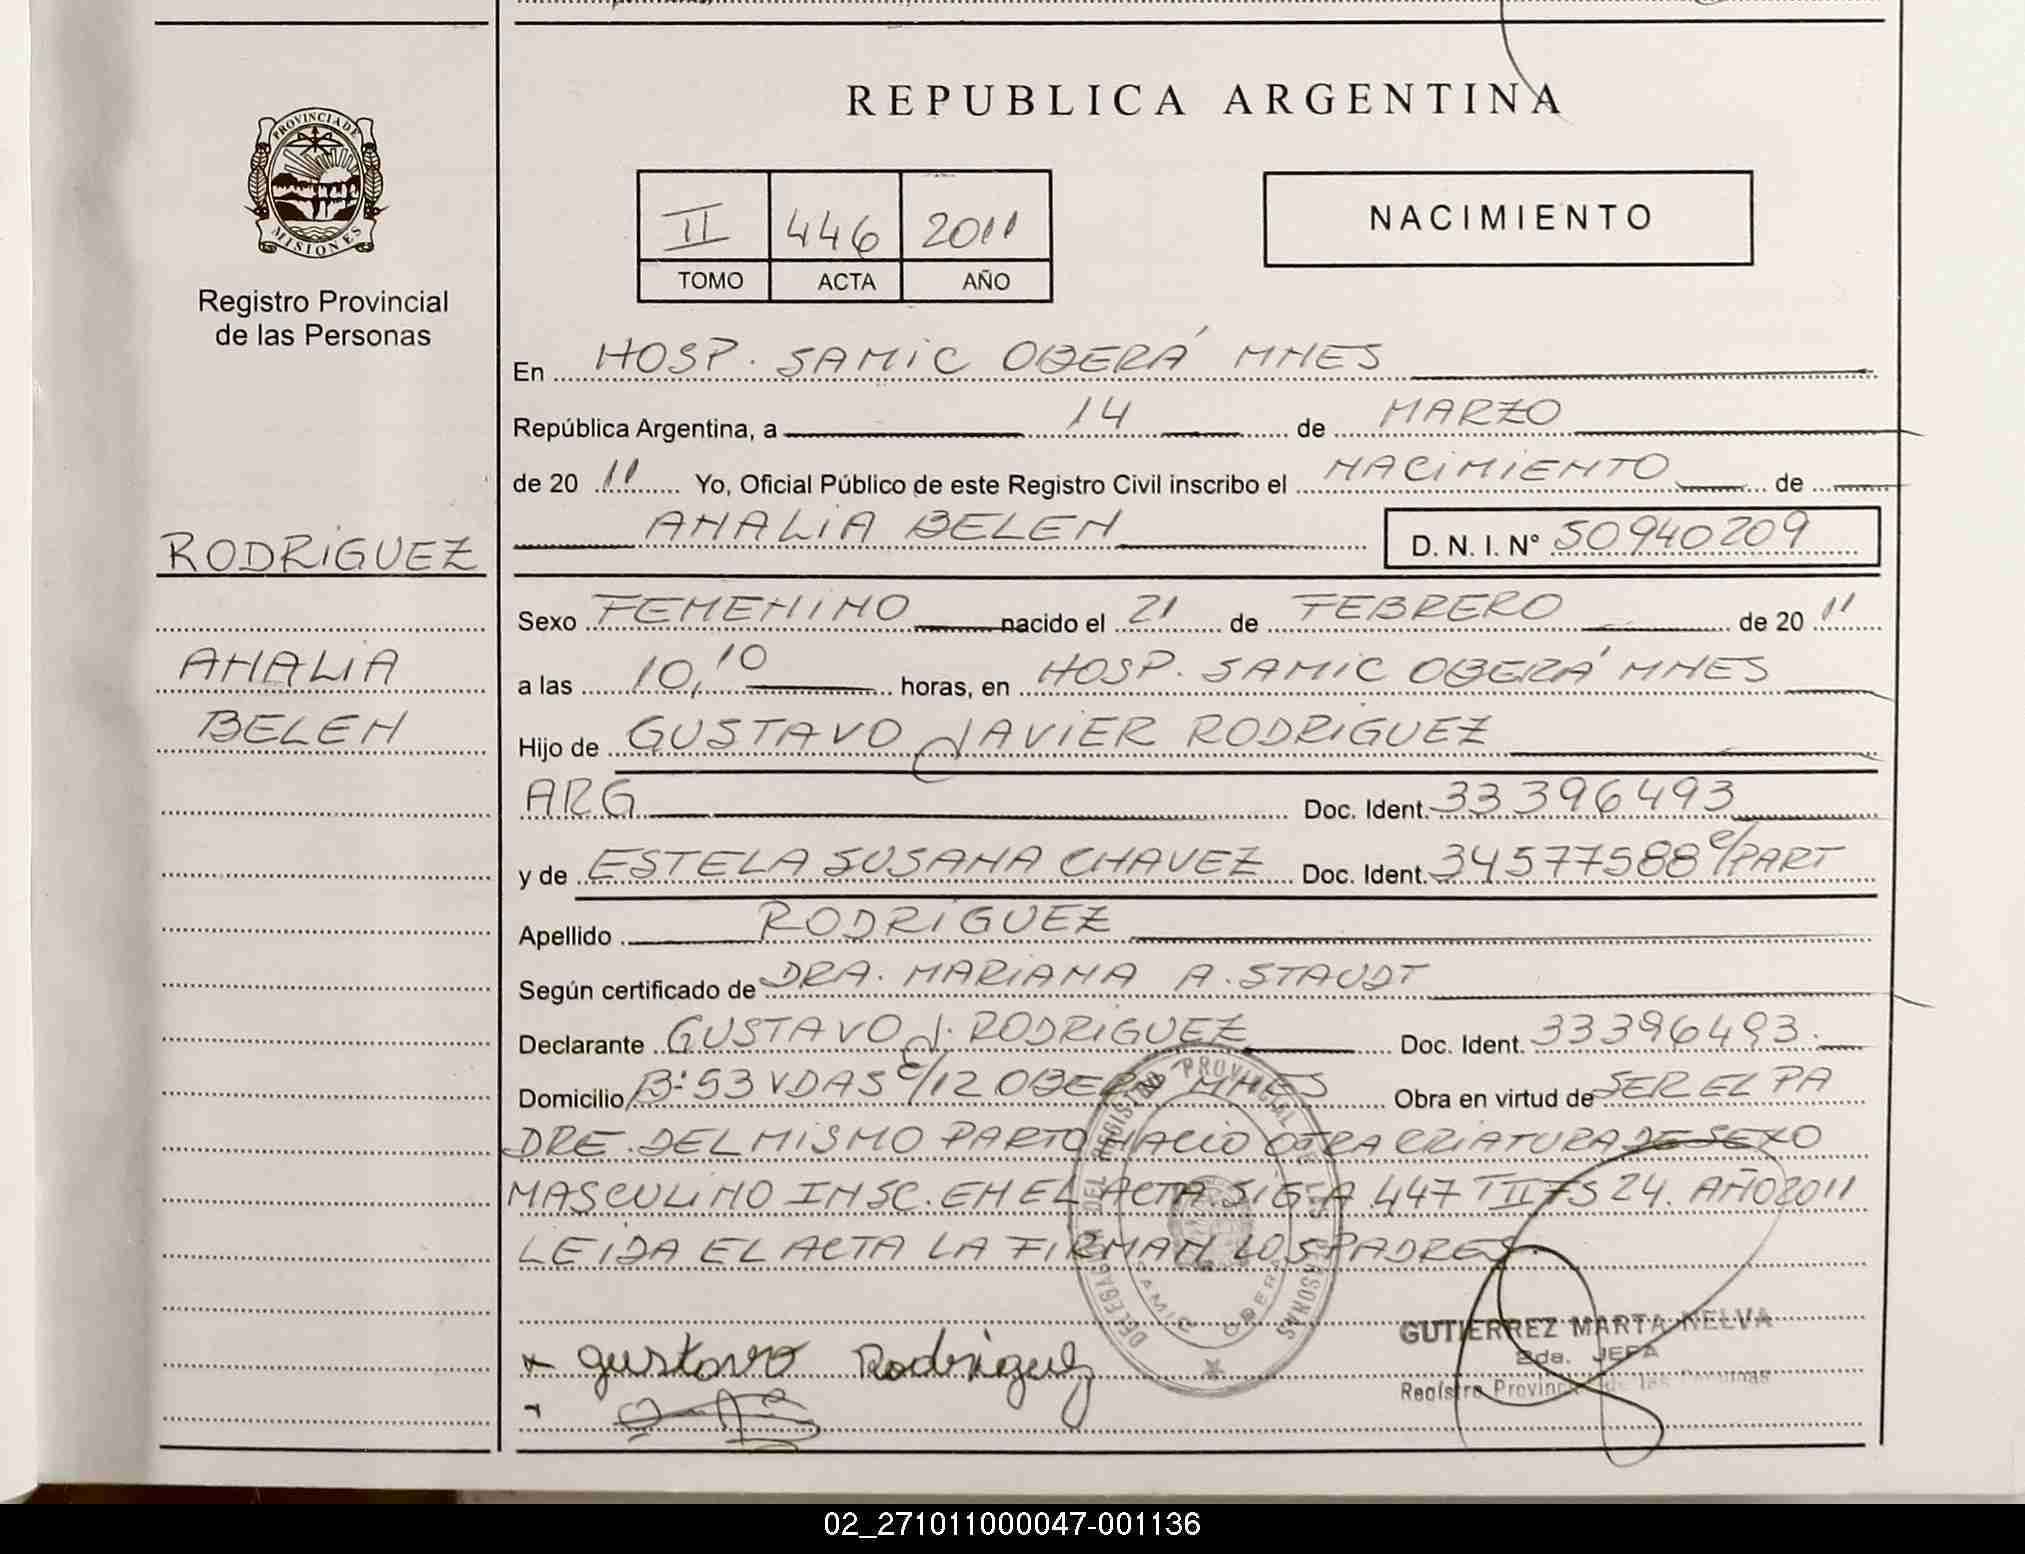 REPUBLICA ARGENTINA
PROVINCIA DE
MISIONES
Registro Provincial
de las Personas
II 446 2011
TOMO ACTA AÑO
NACIMIENTO
En HOSP. SAMIC OBERÁ MNES
República Argentina, a 14 de MARZO
de 20 11 Yo, Oficial Público de este Registro Civil inscribo el NACIMIENTO de
ANALIA BELEN D. N. I. N° 50940209
RODRIGUEZ
ANALIA
BELEN
Sexo FEMENINO nacido el 21 de FEBRERO de 20 11
a las 10,10 horas, en HOSP. SAMIC OBERÁ MNES
Hijo de GUSTAVO JAVIER RODRIGUEZ
ARG Doc. Ident. 33396493
y de ESTELA SUSANA CHAVEZ Doc. Ident. 34577588 C/PART
Apellido RODRIGUEZ
Según certificado de DRA. MARIANA A. STAUDT
Declarante GUSTAVO J. RODRIGUEZ Doc. Ident. 33396493.
Domicilio B: 53 VDAS C/12 OBERA MNES Obra en virtud de SER EL PA
DRE. DEL MISMO PARTO NACIO OTRA CRIATURA DE SEXO
MASCULINO INSC. EN EL ACTA SIG. A 447 TII FS 24. AÑO 2011
LEIDA EL ACTA LA FIRMAN LOS PADRES.
DELEGACION DEL REGISTRO PROVINCIAL DE LAS PERSONAS
SAMIC OBERA
Gustavo Rodriguez
GUTIERREZ MARTA NELVA
2da. JEFA
Registro Provincial de las Personas
02_271011000047-001136